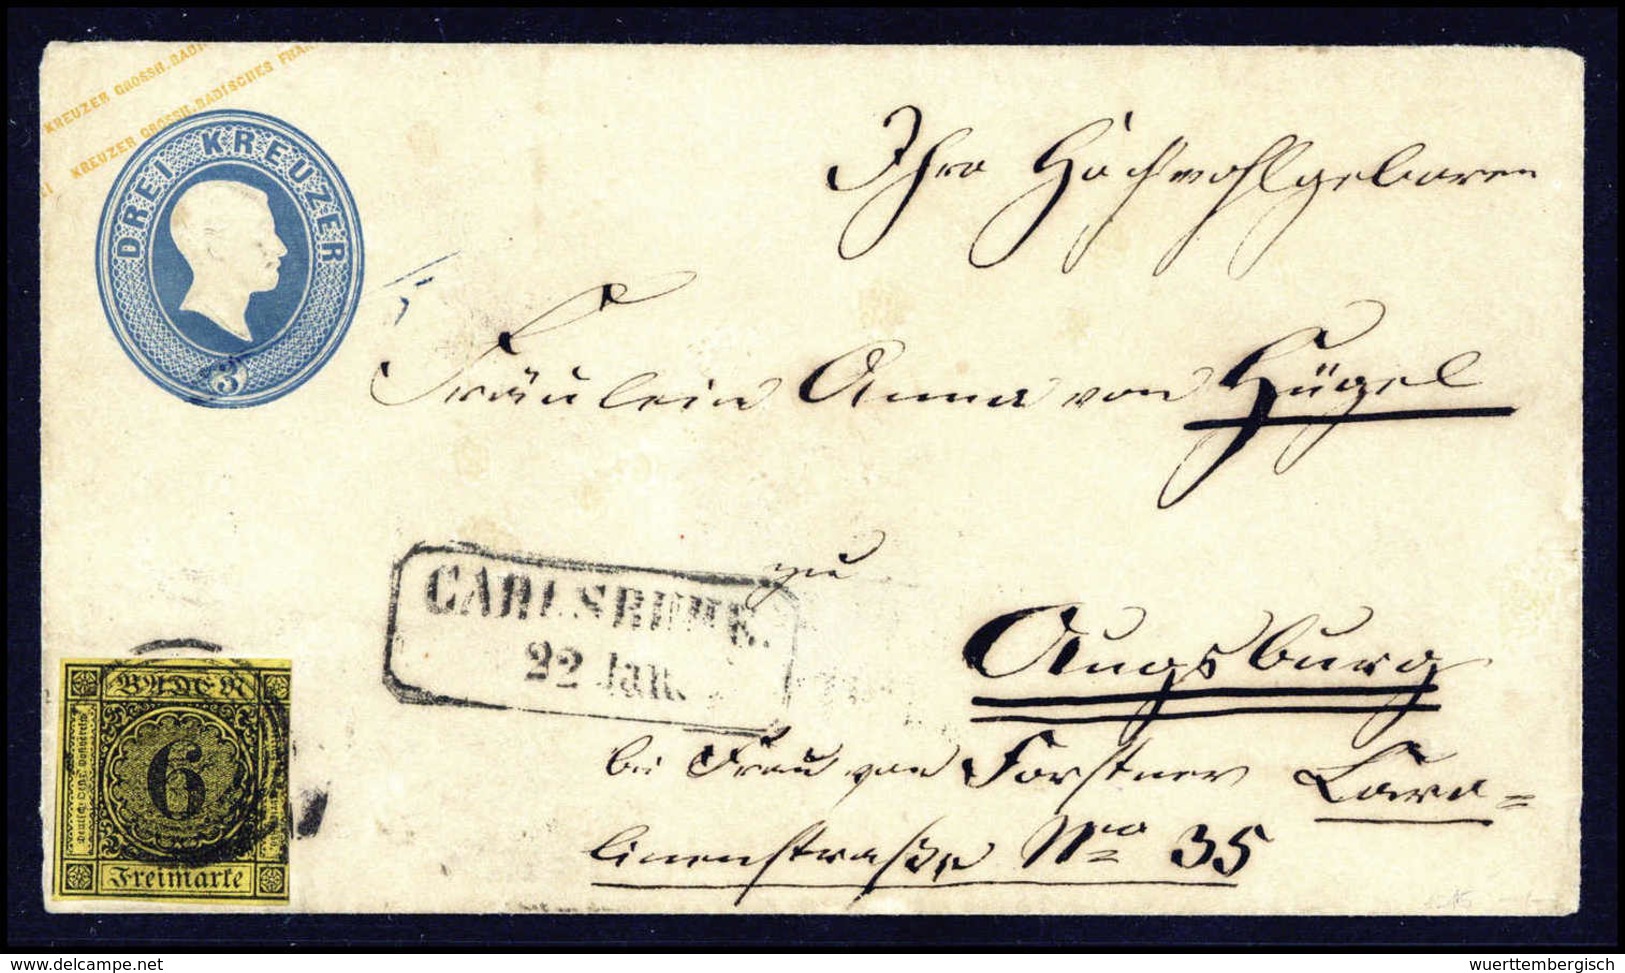 KREUZER GROSSH. BADI
EI KREUZER GROSSH. BADISCHES FRA
DREI KREUZER
3
Ihro Hochwohlgeboren
Fräulein Anna von Hügel
zu
Augsburg
bei Frau von Forstner Caro=
linenstraße No 35
CARLSRUHE.
22 Jan.
BADEN
6
Freimarke
delcampe.net
wuerttembergisch